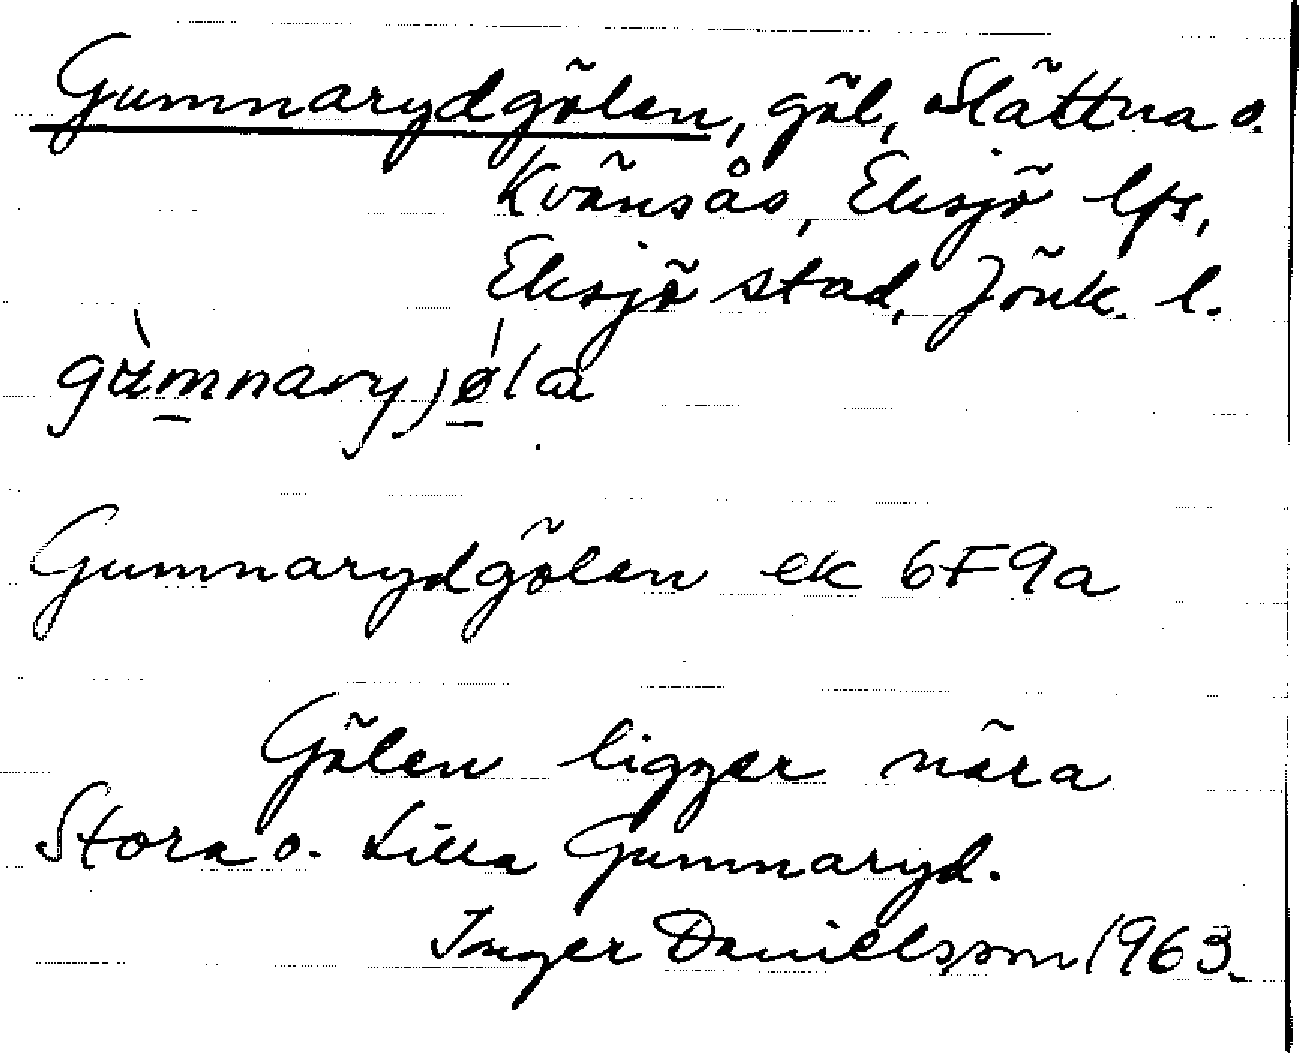 Gummarydgölen, göl, Slättna o.
Kvänsås, Eksjö lfs,
Eksjö stad, Jönk. l.
Gummarydgölen ek 6F9a
Gölen ligger nära
Stora o. Lilla Gummaryd.
Inger Danielsson 1963.